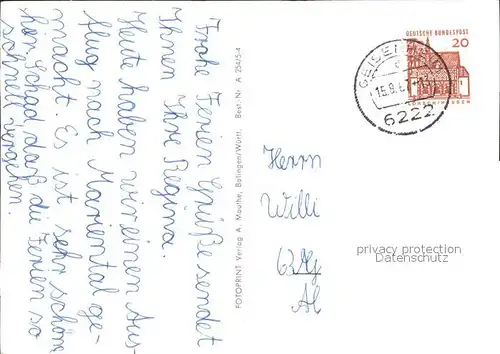 Frohe Ferien Grüße sendet
Ihnen Ihre Regina.
Heute haben wir einen Aus-
flug nach Mariental ge-
macht. Es ist sehr schön
hier. Schad, daß die Ferien so
schnell vergehen.
FOTOPRINT Verlag A. Mauthe, Balingen/Württ. Best.-Nr. A 254/5-4
DEUTSCHE BUNDESPOST
20
LORSCH/HESSEN
GEISENHEIM
15.8.6
6222
Herrn
Willi
privacy protection
Datenschutz